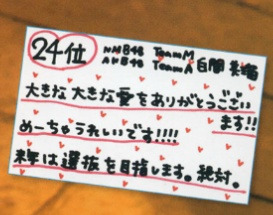 24位 NMB48 TeamM
AKB48 TeamA 白間 美瑠
大きな 大きな愛をありがとうござい
ます!!
めーちゃうれしいです!!!!
来年は選抜を目指します。絶対。